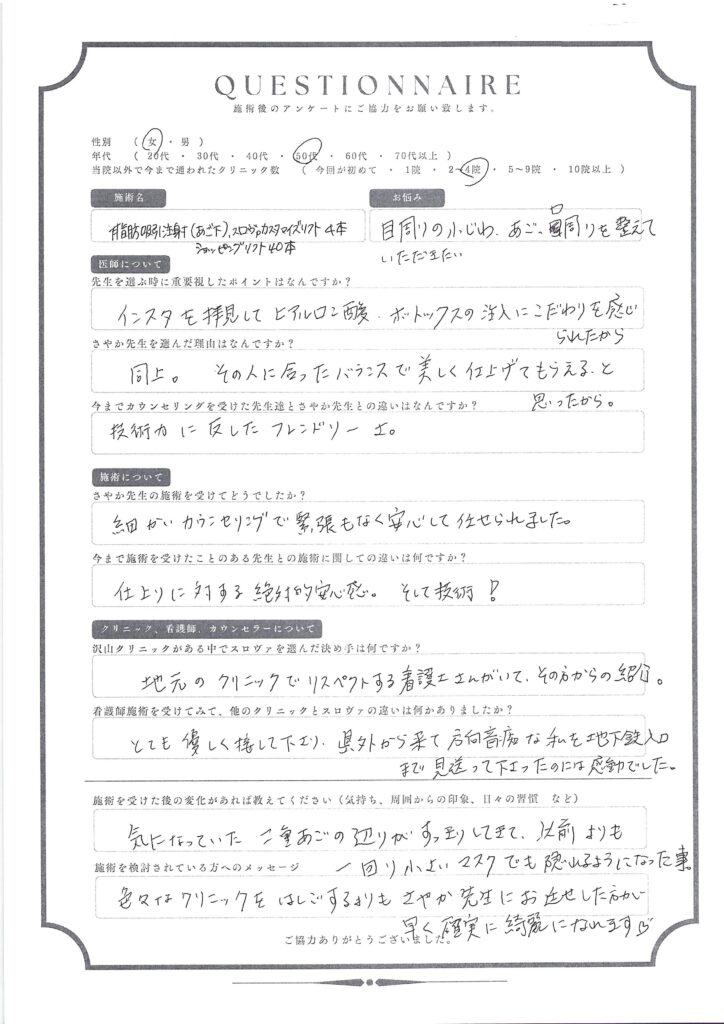 QUESTIONNAIRE
施術後のアンケートにご協力をお願い致します。
性別 ( 女 ・ 男 )
年代 ( 20代 ・ 30代 ・ 40代 ・ 50代 ・ 60代 ・ 70代以上 )
当院以外で今まで通われたクリニック数 ( 今回が初めて ・ 1院 ・ 2~4院 ・ 5~9院 ・ 10院以上 )
施術名
お悩み
脂肪吸引注射(あご下)、スロヴァカスタマイズリフト4本
ショッピングリフト40本
目周りの小じわ、あご、口周りを整えて
いただきたい
医師について
先生を選ぶ時に重要視したポイントはなんですか?
インスタを拝見してヒアルロン酸、ボットックスの注入にこだわりを感じ
られたから
さやか先生を選んだ理由はなんですか?
同上。 その人に合ったバランスで美しく仕上げてもらえると
思ったから。
今までカウンセリングを受けた先生達とさやか先生との違いはなんですか?
技術力に反したフレンドリーさ。
施術について
さやか先生の施術を受けてどうでしたか?
細かいカウンセリングで緊張もなく安心して任せられました。
今まで施術を受けたことのある先生との施術に関しての違いは何ですか?
仕上りに対する絶対的安心感。 そして技術!
クリニック、看護師、カウンセラーについて
沢山クリニックがある中でスロヴァを選んだ決め手は何ですか?
地元のクリニックでリスペクトする看護士さんがいて、その方からの紹介。
看護師施術を受けてみて、他のクリニックとスロヴァの違いは何かありましたか?
とても優しく接して下さり、県外から来て方向音痴な私を地下鉄入口
まで見送って下さったのには感動でした。
施術を受けた後の変化があれば教えてください(気持ち、周囲からの印象、日々の習慣 など)
気になっていた二重あごの辺りがすっきりしてきて、以前よりも
一回り小さいマスクでも隠れるようになった事。
施術を検討されている方へのメッセージ
色々なクリニックをはしごするよりもさやか先生にお任せした方が
早く確実に綺麗になれます
ご協力ありがとうございました。